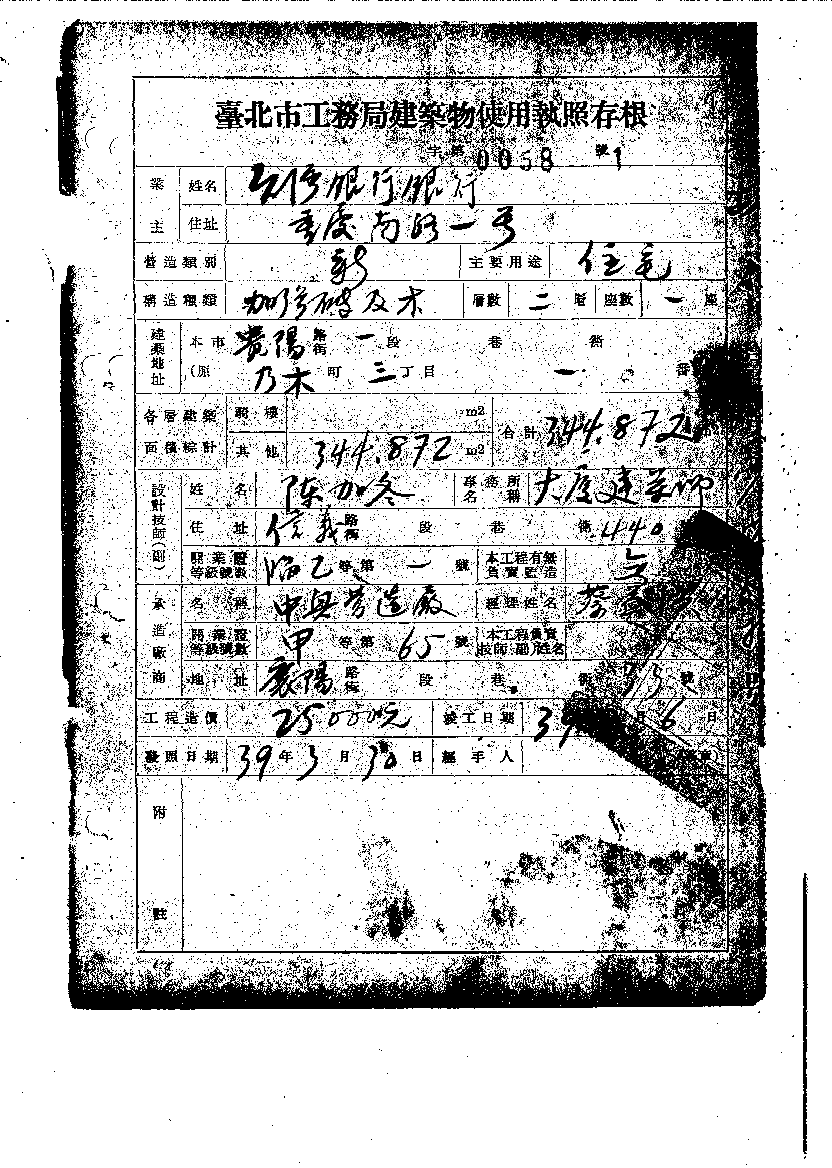 臺北市工務局建築物使用執照存根
字第0058號1
業主 姓名 銀行銀行
住址 重慶南路一号
營造類別 新 主要用途 住宅
構造種類 加強磚及木 層數 二 層 座數 一 座
建築地址 本市 貴陽 路街 一 段 巷 衖
(原 乃木 町 三 丁目 一 番
各層建築面積綜計 騎樓 m2 合計 344.872
其他 344.872 m2
設計技師(副) 姓名 陳加冬 事務所名稱 大廈建築師
住址 信義 路街 段 巷 衖 440
開業證等級號數 臨乙 等第 一 號 本工程有無負責監造
承造廠商 名稱 中興营造廠 經理姓名 蔡
開業證等級號數 甲 等第 65 號 本工程負責技師(副)姓名
地址 襄陽 路街 段 巷 衖 33 號
工程造價 250000元 竣工日期 39 月 6 日
發照日期 39 年 3 月 30 日 經手人
附註